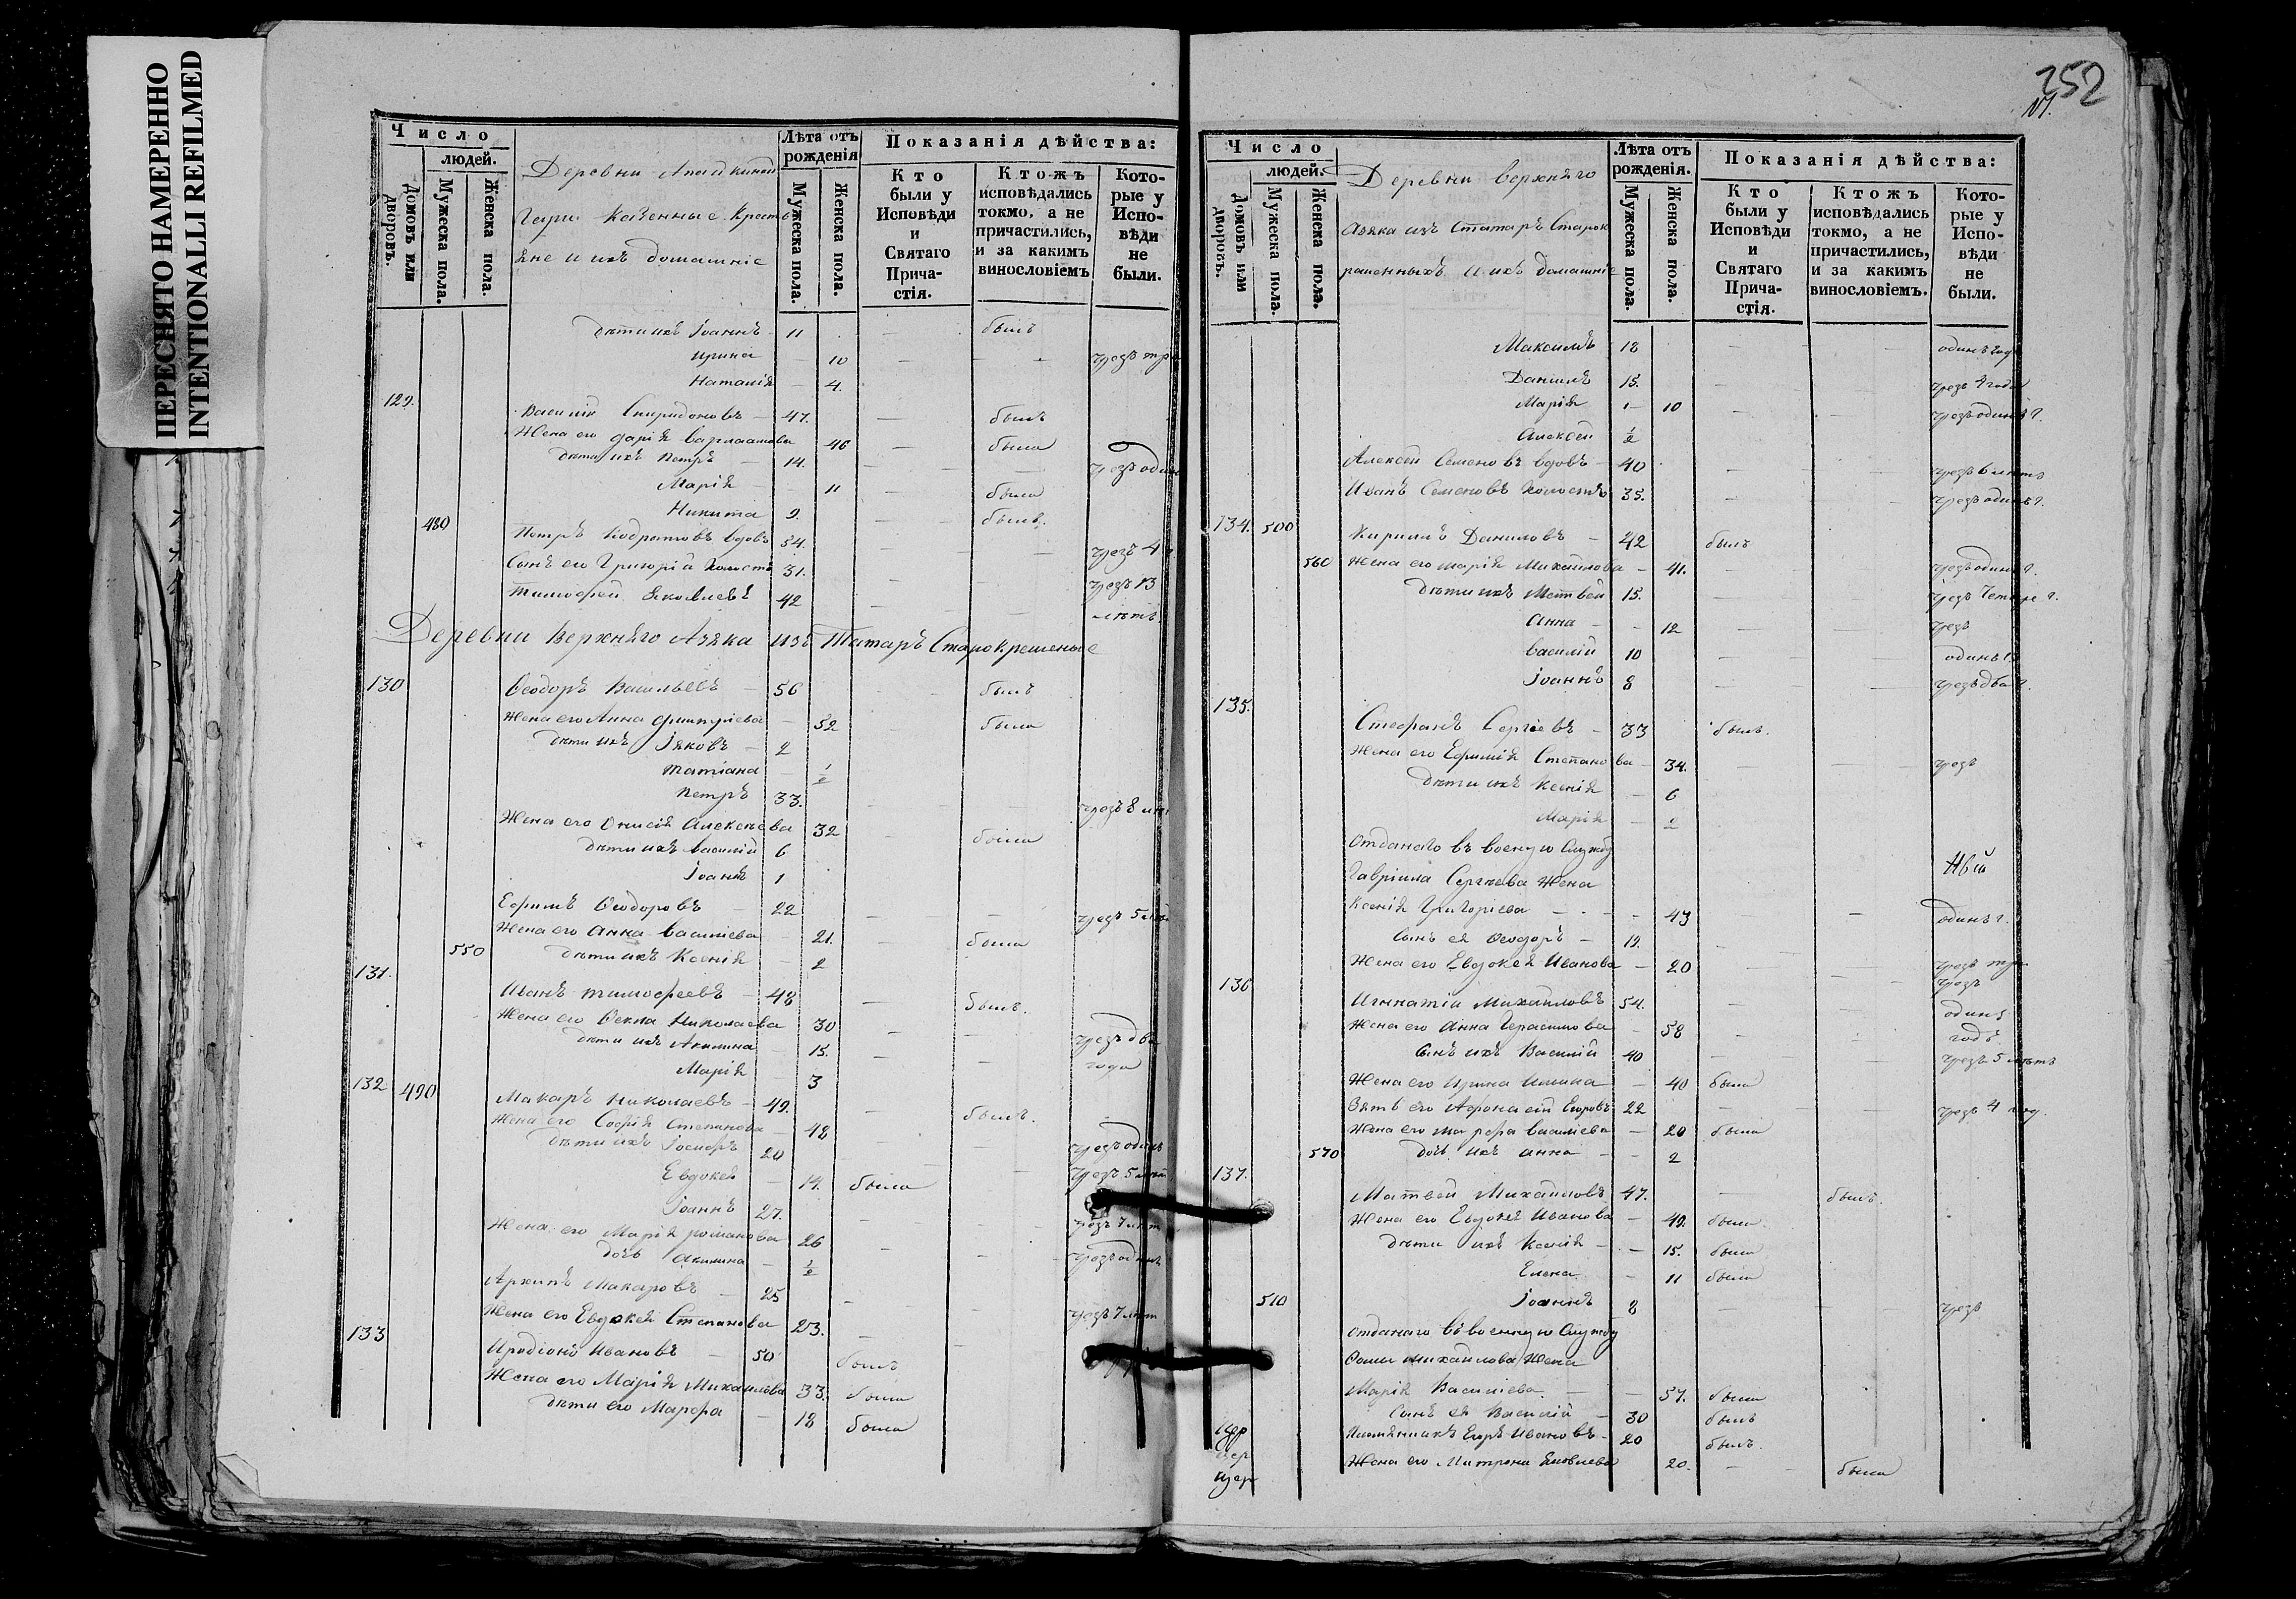 ПЕРЕСНЯТО НАМЕРЕННО
INTENTIONALLI REFILMED
Число
людей.
Домовъ или дворовъ.
Мужеска пола.
Женска пола.
Деревни
Гари казенные Кресть
яне и ихъ домашніе
Лѣта отъ рожденія
Мужеска пола.
Женска пола.
Показанія дѣйства:
Кто были у Исповѣди и Святаго Причастія.
Ктожъ исповѣдались токмо, а не причастились, и за какимъ винословіемъ
Которые у Исповѣди не были.
дѣти ихъ Іоаннъ 11 былъ
Ирина 10 чрезъ три
Наталія 4.
129.
Василій Спиридоновъ 47. былъ
Жена его Дарія Варлаамова 46 была
дѣти ихъ Петръ 14. чрезъ один
Марія 11 была
Никита 9. былъ.
480
Петръ Кодратовъ вдовъ 54. чрезъ 4 г
Сынъ его Григорій холостъ 31. чрезъ 13
Тимофей Яковлевъ 42 лѣтъ
Деревни Верхняго Азяка изъ Татаръ Старокрещеные
130
Ѳеодоръ Васильевъ 56 былъ
Жена его Анна Дмитріева 52 была
дѣти ихъ Іяковъ 2
Татіана ½
Петръ 33. чрезъ 8 лѣт
Жена его Анисія Алексѣева 32 была
дѣти ихъ Василій 6
Іоаннъ 1
Ефимъ Ѳеодоровъ 22 чрезъ 5 лѣт
Жена его Анна Василіева 21. была
550 дѣти ихъ Ксенія 2
131.
Иванъ Тимофеевъ 48 былъ.
Жена его Ѳекла Николаева 30 чрезъ два
дѣти ихъ Акилина 15. года
Марія 3
132 490
Макаръ Николаевъ 49. былъ.
Жена его Софія Степанова 48 чрезъ один
дѣти ихъ Іосифъ 20 чрезъ 5 лѣт
Евдокея 14. была
Іоаннъ 27. чрезъ 7 лѣт
Жена его Марія Романова 26 чрезъ один
дочь Акилина ½
Архипъ Макаровъ 25 чрезъ 7 лѣт
Жена его Евдокея Степанова 23.
133
Иродіонъ Ивановъ 50 былъ
Жена его Марія Михайлова 33. была
дѣти его Марфа 18 была
252
Число
людей.
Домовъ или дворовъ.
Мужеска пола.
Женска пола.
Деревни Верхняго
Азяка изъ Статаръ Старок
рещенныхъ и ихъ домашніе
Лѣта отъ рожденія.
Мужеска пола.
Женска пола.
Показанія дѣйства:
Кто были у Исповѣди и Святаго Причастія.
Ктожъ исповѣдались токмо, а не причастились, и за какимъ винословіемъ.
Которые у Исповѣди не были.
Максимъ 18 одинъ год
Даніилъ 15. чрезъ 4 года
Марія 10 чрезъ одинъ г.
Алексей ½
Алексей Семеновъ вдовъ 40 чрезъ 6 лѣтъ
Иванъ Семеновъ холостъ 35. чрезъ одинъ г.
134. 500
Кирилъ Даниловъ 42 былъ
560 Жена его Марія Михайлова 41. чрезъ одинъ г.
дѣти ихъ Матвей 15. чрезъ четыре г.
Анна 12 чрезъ
Василій 10 одинъ г.
Іоаннъ 8 чрезъ два г.
135.
Стефанъ Сергіевъ 33 былъ.
Жена его Ефимія Степанова 34. чрезъ
дѣти ихъ Ксенія 6
Марія 2
Отданаго въ военую Службу
Гавріила Сергѣева Жена
Ксенія Григоріева 43 одинъ г.
Сынъ ея Ѳеодоръ 19.
Жена его Евдокея Иванова 20 чрезъ три
136 чрезъ
Игнатій Михайловъ 54. одинъ
Жена его Анна Герасимова 58 годъ
Сынъ ихъ Василій 40 чрезъ 5 лѣтъ
Жена его Ирина Ильина 40 была
Зять его Афонасій Егоровъ 22 чрезъ 4 год.
Жена его Марфа Василіева 20 была
570 дочь ихъ Анна 2
137.
Матвей Михайловъ 47. былъ.
Жена его Евдокея Иванова 49. была
дѣти ихъ Ксенія 15. была
Елена 11 была
510 Іоаннъ 8 чрезъ
Отданаго въ военную Службу
Ѳомы Михайлова Жена
Марія Василіева 57. была
Сынъ ея Василій 30 былъ
Племянникъ Егоръ Ивановъ 20 былъ.
Жена его Матрона Яковлева 20. была